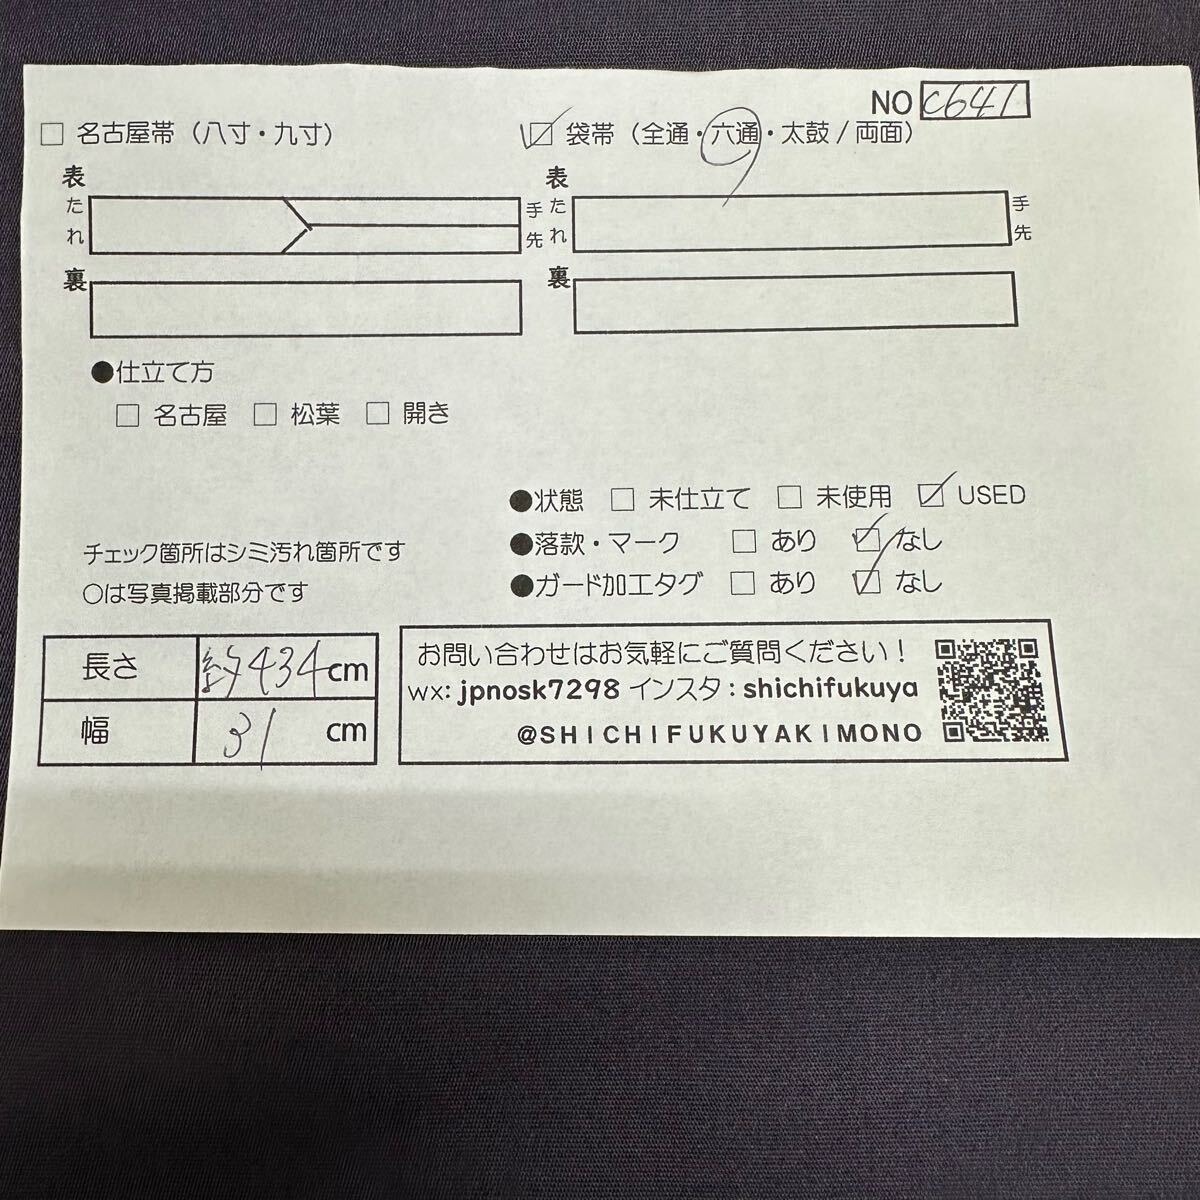 NO C641
□ 名古屋帯（八寸・九寸）
☑ 袋帯（全通・六通・太鼓/両面）
表
たれ
手先
裏
表
たれ
手先
裏
●仕立て方
□ 名古屋 □ 松葉 □ 開き
●状態 □ 未仕立て □ 未使用 ☑ USED
●落款・マーク □ あり ☑ なし
●ガード加工タグ □ あり ☑ なし
チェック箇所はシミ汚れ箇所です
○は写真掲載部分です
長さ 約434cm
幅 31 cm
お問い合わせはお気軽にご質問ください！
wx: jpnosk7298 インスタ：shichifukuya
@SHICHIFUKUYAKIMONO